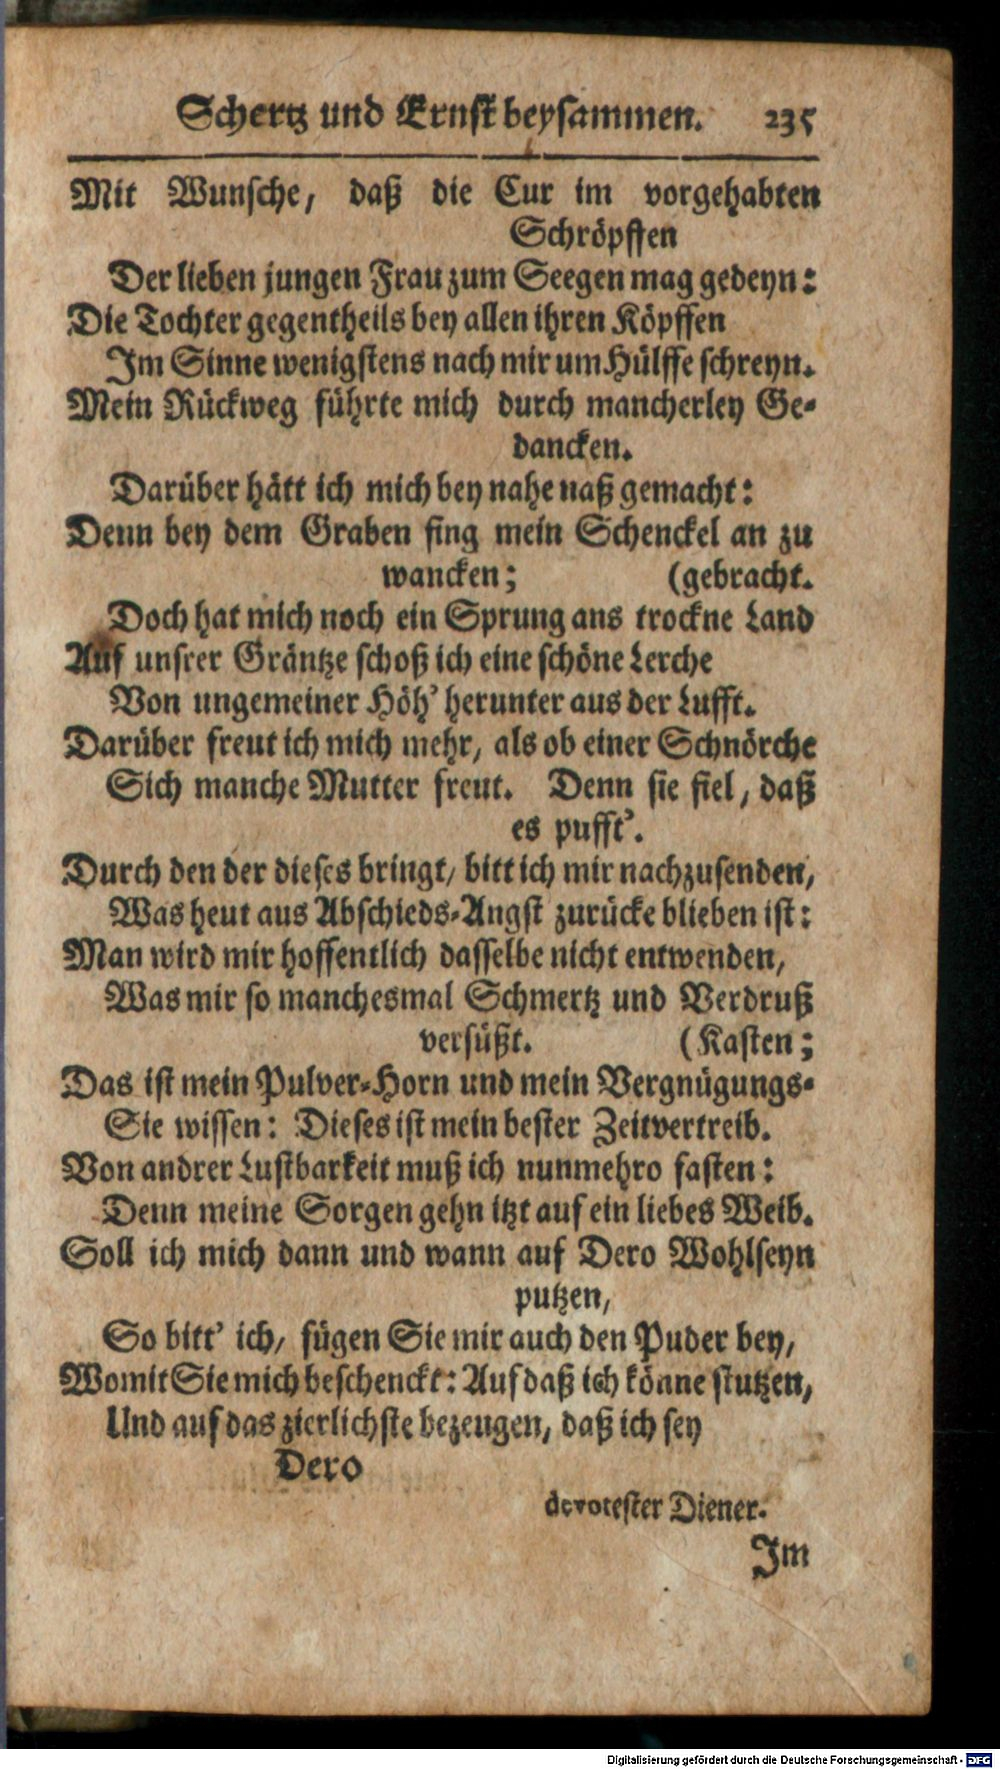 Schertz und Ernst beysammen. 235
Mit Wunsche, daß die Cur im vorgehabten
Schröpffen
Der lieben jungen Frau zum Seegen mag gedeyn:
Die Tochter gegentheils bey allen ihren Köpffen
Im Sinne wenigstens nach mir um Hülffe schreyn.
Mein Rückweg führte mich durch mancherley Ge-
dancken.
Darüber hätt ich mich bey nahe naß gemacht:
Denn bey dem Graben fing mein Schenckel an zu
wancken; (gebracht.
Doch hat mich noch ein Sprung ans trockne Land
Auf unsrer Gräntze schoß ich eine schöne Lerche
Von ungemeiner Höh' herunter aus der Lufft.
Darüber freut ich mich mehr, als ob einer Schnörche
Sich manche Mutter freut. Denn sie fiel, daß
es pufft'.
Durch den der dieses bringt, bitt ich mir nachzusenden,
Was heut aus Abschieds-Angst zurücke blieben ist:
Man wird mir hoffentlich dasselbe nicht entwenden,
Was mir so manchesmal Schmertz und Verdruß
versüßt. (Kasten;
Das ist mein Pulver-Horn und mein Vergnügungs-
Sie wissen: Dieses ist mein bester Zeitvertreib.
Von andrer Lustbarkeit muß ich nunmehro fasten:
Denn meine Sorgen gehn itzt auf ein liebes Weib.
Soll ich mich dann und wann auf Dero Wohlseyn
putzen,
So bitt' ich, fügen Sie mir auch den Puder bey,
Womit Sie mich beschenckt: Auf daß ich könne stutzen,
Und auf das zierlichste bezeugen, daß ich sey
Dero
devotester Diener.
Im
Digitalisierung gefördert durch die Deutsche Forschungsgemeinschaft - DFG